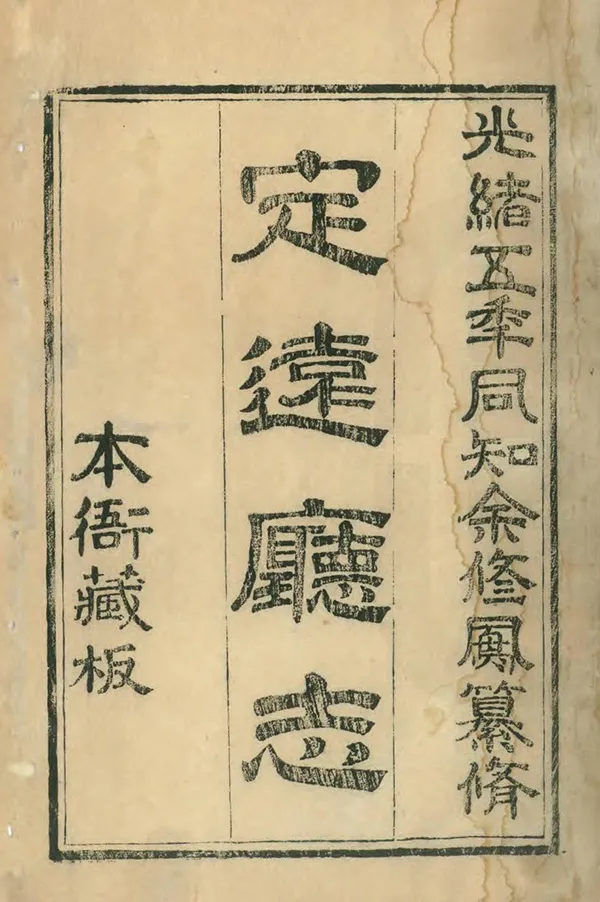 光緒五季同知余修鳳纂脩
定遠廳志
本衙藏板